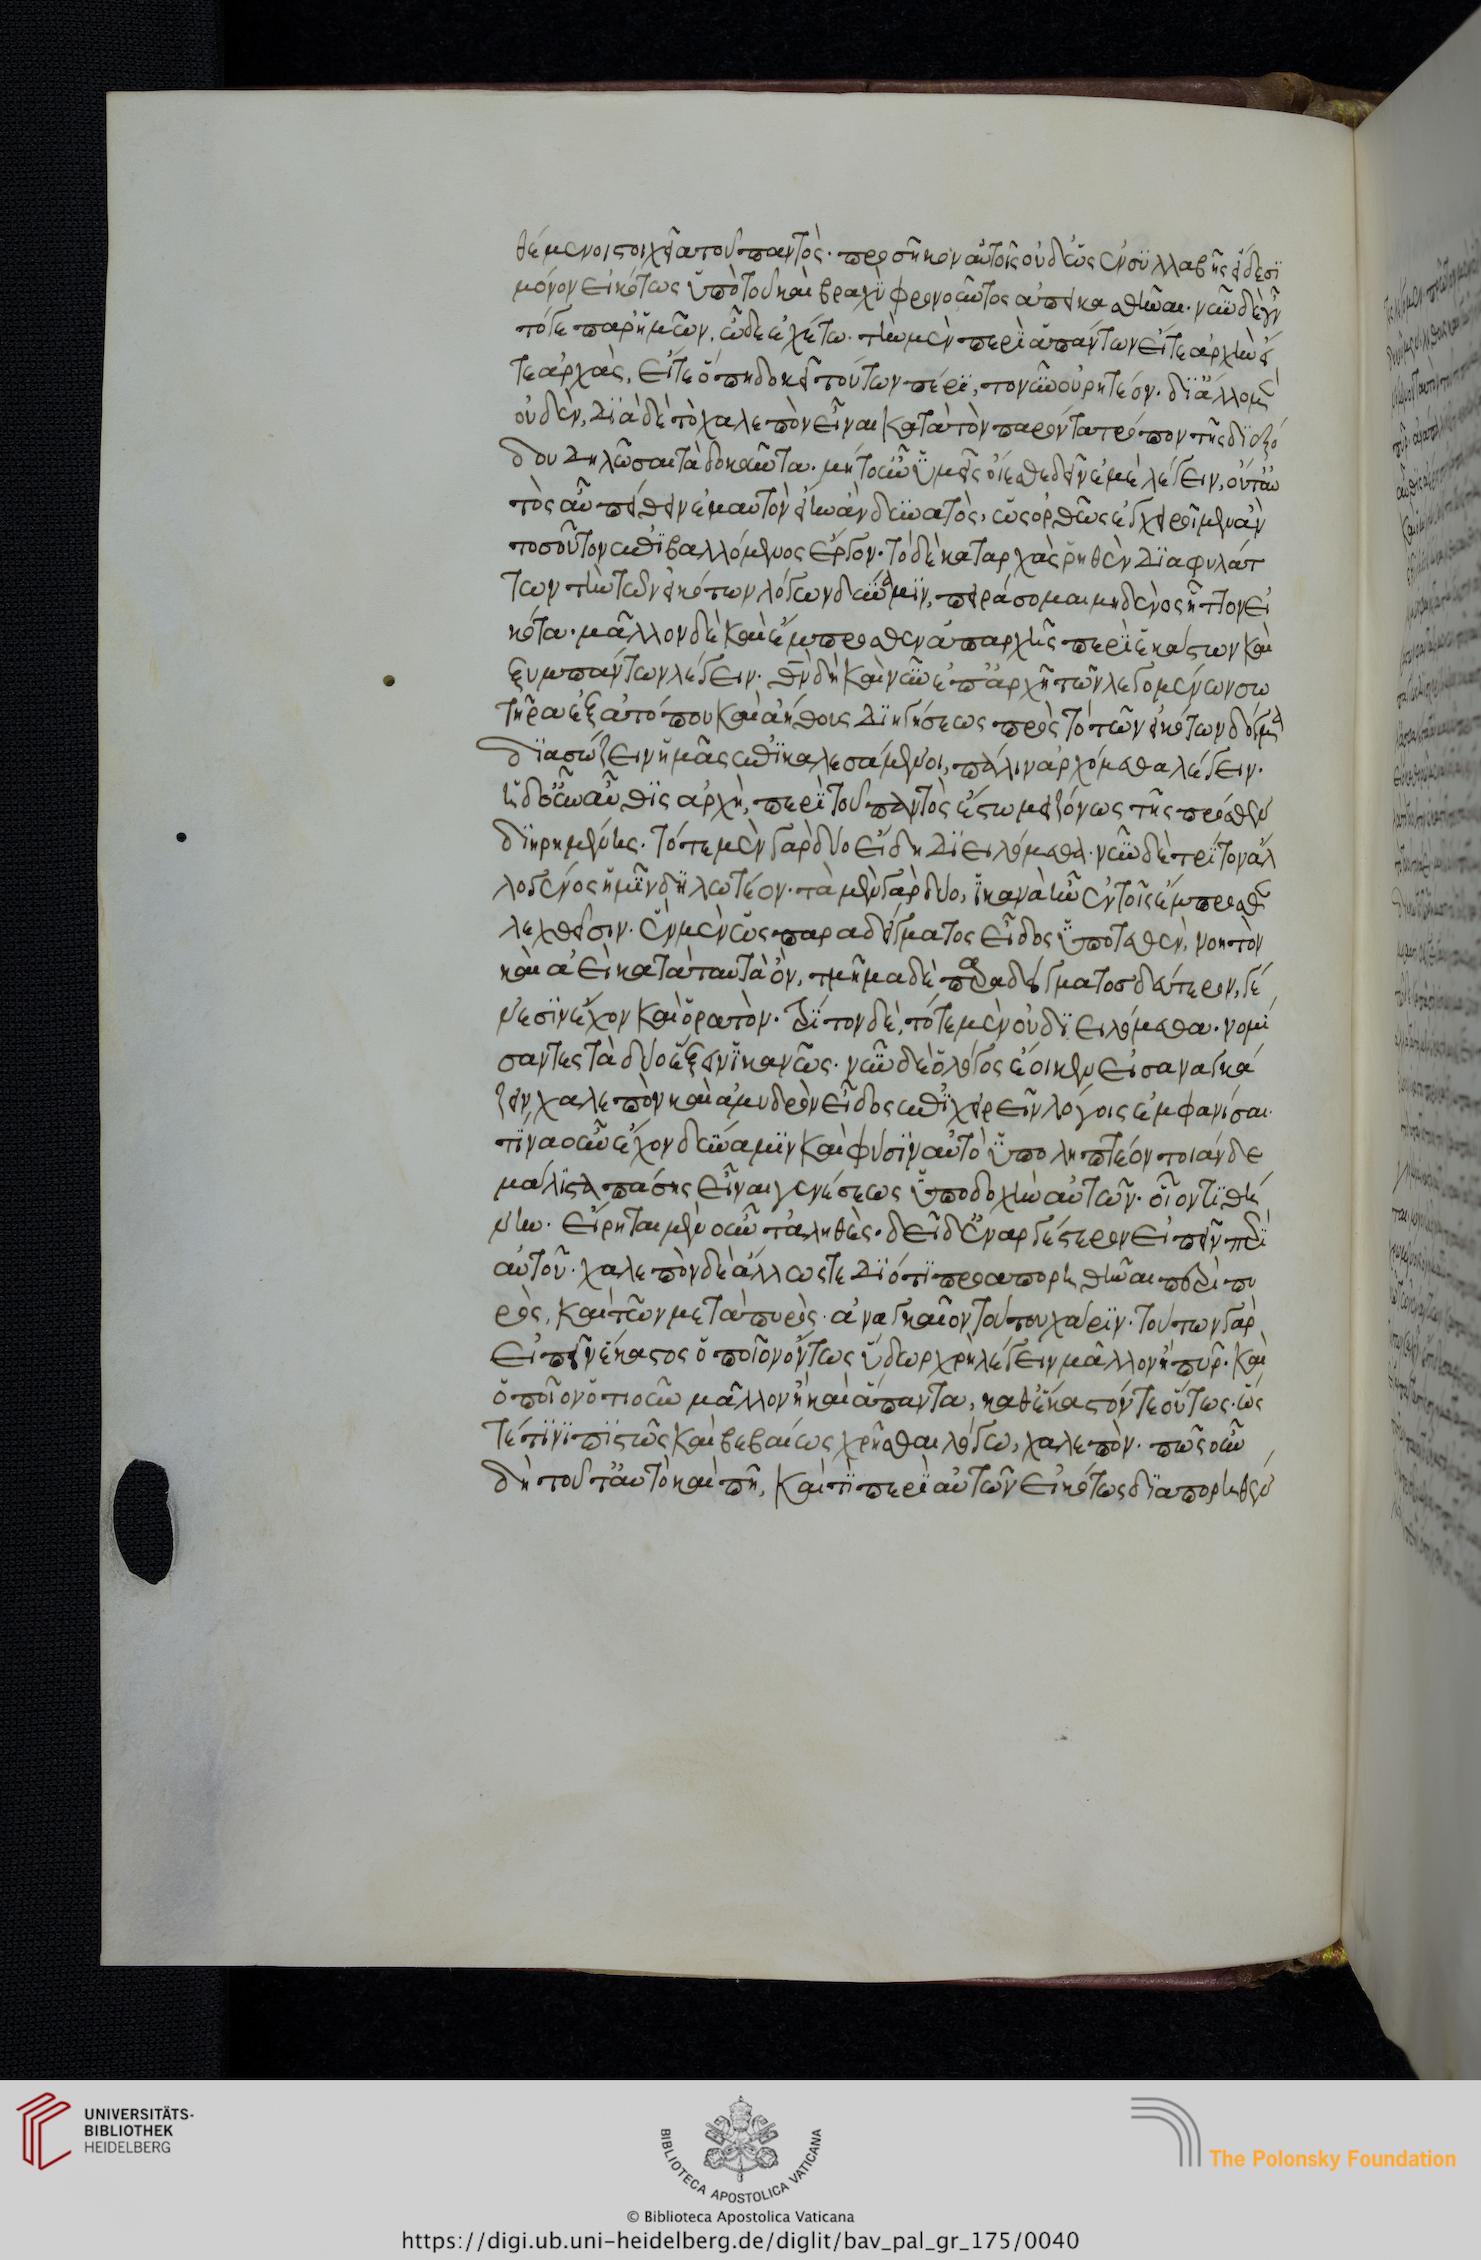 θέμενοι στοιχεῖα τοῦ παντὸς· προσῆκον αὐτοῖς οὐδ' ὡς ἐν συλλαβῆς εἴδεσι
μόνον εἰκότως ὑπὸ τοῦ καὶ βραχὺ φρονοῦντος ἀπεικασθῆναι· νῦν δὲ γὰρ
τότε παρ' ἡμῶν, ὧδε ἐχέτω· τὴν μὲν περὶ ἁπάντων εἴτε ἀρχὴν εἴ
τε ἀρχὰς, εἴτε ὅπη δοκεῖ τούτων πέρι, το νῦν οὐ ρητέον· δι' ἄλλο μὲν
οὐδὲν, διὰ δὲ τὸ χαλεπὸν εἶναι κατὰ τὸν παρόντα τρόπον τῆς διεξό
δου δηλῶσαι τὰ δοκοῦντα· μήτ' οὖν ὑμεῖς οἴεσθε δεῖν ἐμὲ λέγειν, οὔτ' αὐ
τὸς αὖ πείθειν ἐμαυτὸν εἴην ἂν δυνατὸς, ὡς ὀρθῶς ἐγχειροῖμεν ἂν
τοσοῦτον ἐπιβαλλόμενος ἔργον· τὸ δὲ καταρχὰς ῥηθὲν διαφυλάτ
των τὴν τῶν εἰκότων λόγων δύναμιν, πειράσομαι μηδενὸς ἧττον εἰ
κότα· μᾶλλον δὲ καὶ ἔμπροσθεν ἀπαρχῆς περὶ ἑκάστων καὶ
ξυμπάντων λέγειν· θν δὴ καὶ νῦν ἐπ' ἀρχῆ τῶν λεγομένων σω
τῆρα ἐξ ἀτόπου καὶ ἀήθους διηγήσεως πρὸς τὸ τῶν εἰκότων δόγμα
διασώζειν ἡμᾶς ἐπικαλεσάμενοι, πάλιν ἀρχόμεθα λέγειν·
ἡ δ' οὖν αὖθις ἀρχὴ, περὶ τοῦ παντὸς ἔστω μειζόνως τῆς πρόσθεν
διηρημένης· τότε μὲν γὰρ δύο εἴδη διειλόμεθα· νῦν δὲ τρίτον ἄλ
λο γένος ἡμῖν δηλωτέον· τὰ μὲν γὰρ δύο, ἱκανὰ ἦν ἐν τοῖς ἔμπροσθεν
λεχθεῖσιν· ἓν μὲν ὡς παραδείγματος εἶδος ὑποτεθὲν, νοητὸν
καὶ ἀεὶ κατὰ ταυτὰ ὂν, τμῆμα δὲ παραδείγματος δεύτερον, γέ
νεσιν ἔχον καὶ ὁρατὸν· τρίτον δὲ, τότε μὲν οὐ διειλόμεθα· νομί
σαντες τὰ δύο ἕξειν ἱκανῶς· νῦν δὲ ὁ λόγος ἔοικεν εἰσαναγκά
ζειν χαλεπὸν καὶ ἀμυδρὸν εἶδος ἐπιχειρεῖν λόγοις ἐμφανίσαι·
τίνα οὖν ἔχον δύναμιν καὶ φύσιν αὐτὸ ὑποληπτέον τοιάνδε
μάλιστα πάσης εἶναι γενέσεως ὑποδοχὴν αὐτῶν· οἷον τιθή
νην· εἴρηται μὲν οὖν τἀληθὲς· δεῖ δὲ ἐναργέστερον εἰπεῖν περὶ
αὐτοῦ· χαλεπὸν δὲ ἄλλως τε διότι προαπορηθῆναι περὶ πυ
ρὸς, καὶ τῶν μετὰ πυρὸς· ἀναγκαῖον τούτου χάριν· τούτων γὰρ
εἰπεῖν ἕκαστος ὁποῖον ὄντως ὕδωρ χρὴ λέγειν μᾶλλον ἢ πῦρ· καὶ
ὁποῖον ὁτιοῦν μᾶλλον ἢ καὶ ἅπαντα, καθ' ἕκαστόν τε οὕτως· ὥς
τέ τινι πιστῶς καὶ βεβαίως χρῆσθαι λόγω, χαλεπὸν· πῶς οὖν
δὴ τοῦτ' αὐτὸ καὶ πῆ, καὶ τί περὶ αὐτῶν εἰκότως διαπορηθέν
UNIVERSITÄTS-
BIBLIOTHEK
HEIDELBERG
BIBLIOTECA APOSTOLICA VATICANA
The Polonsky Foundation
© Biblioteca Apostolica Vaticana
https://digi.ub.uni-heidelberg.de/diglit/bav_pal_gr_175/0040